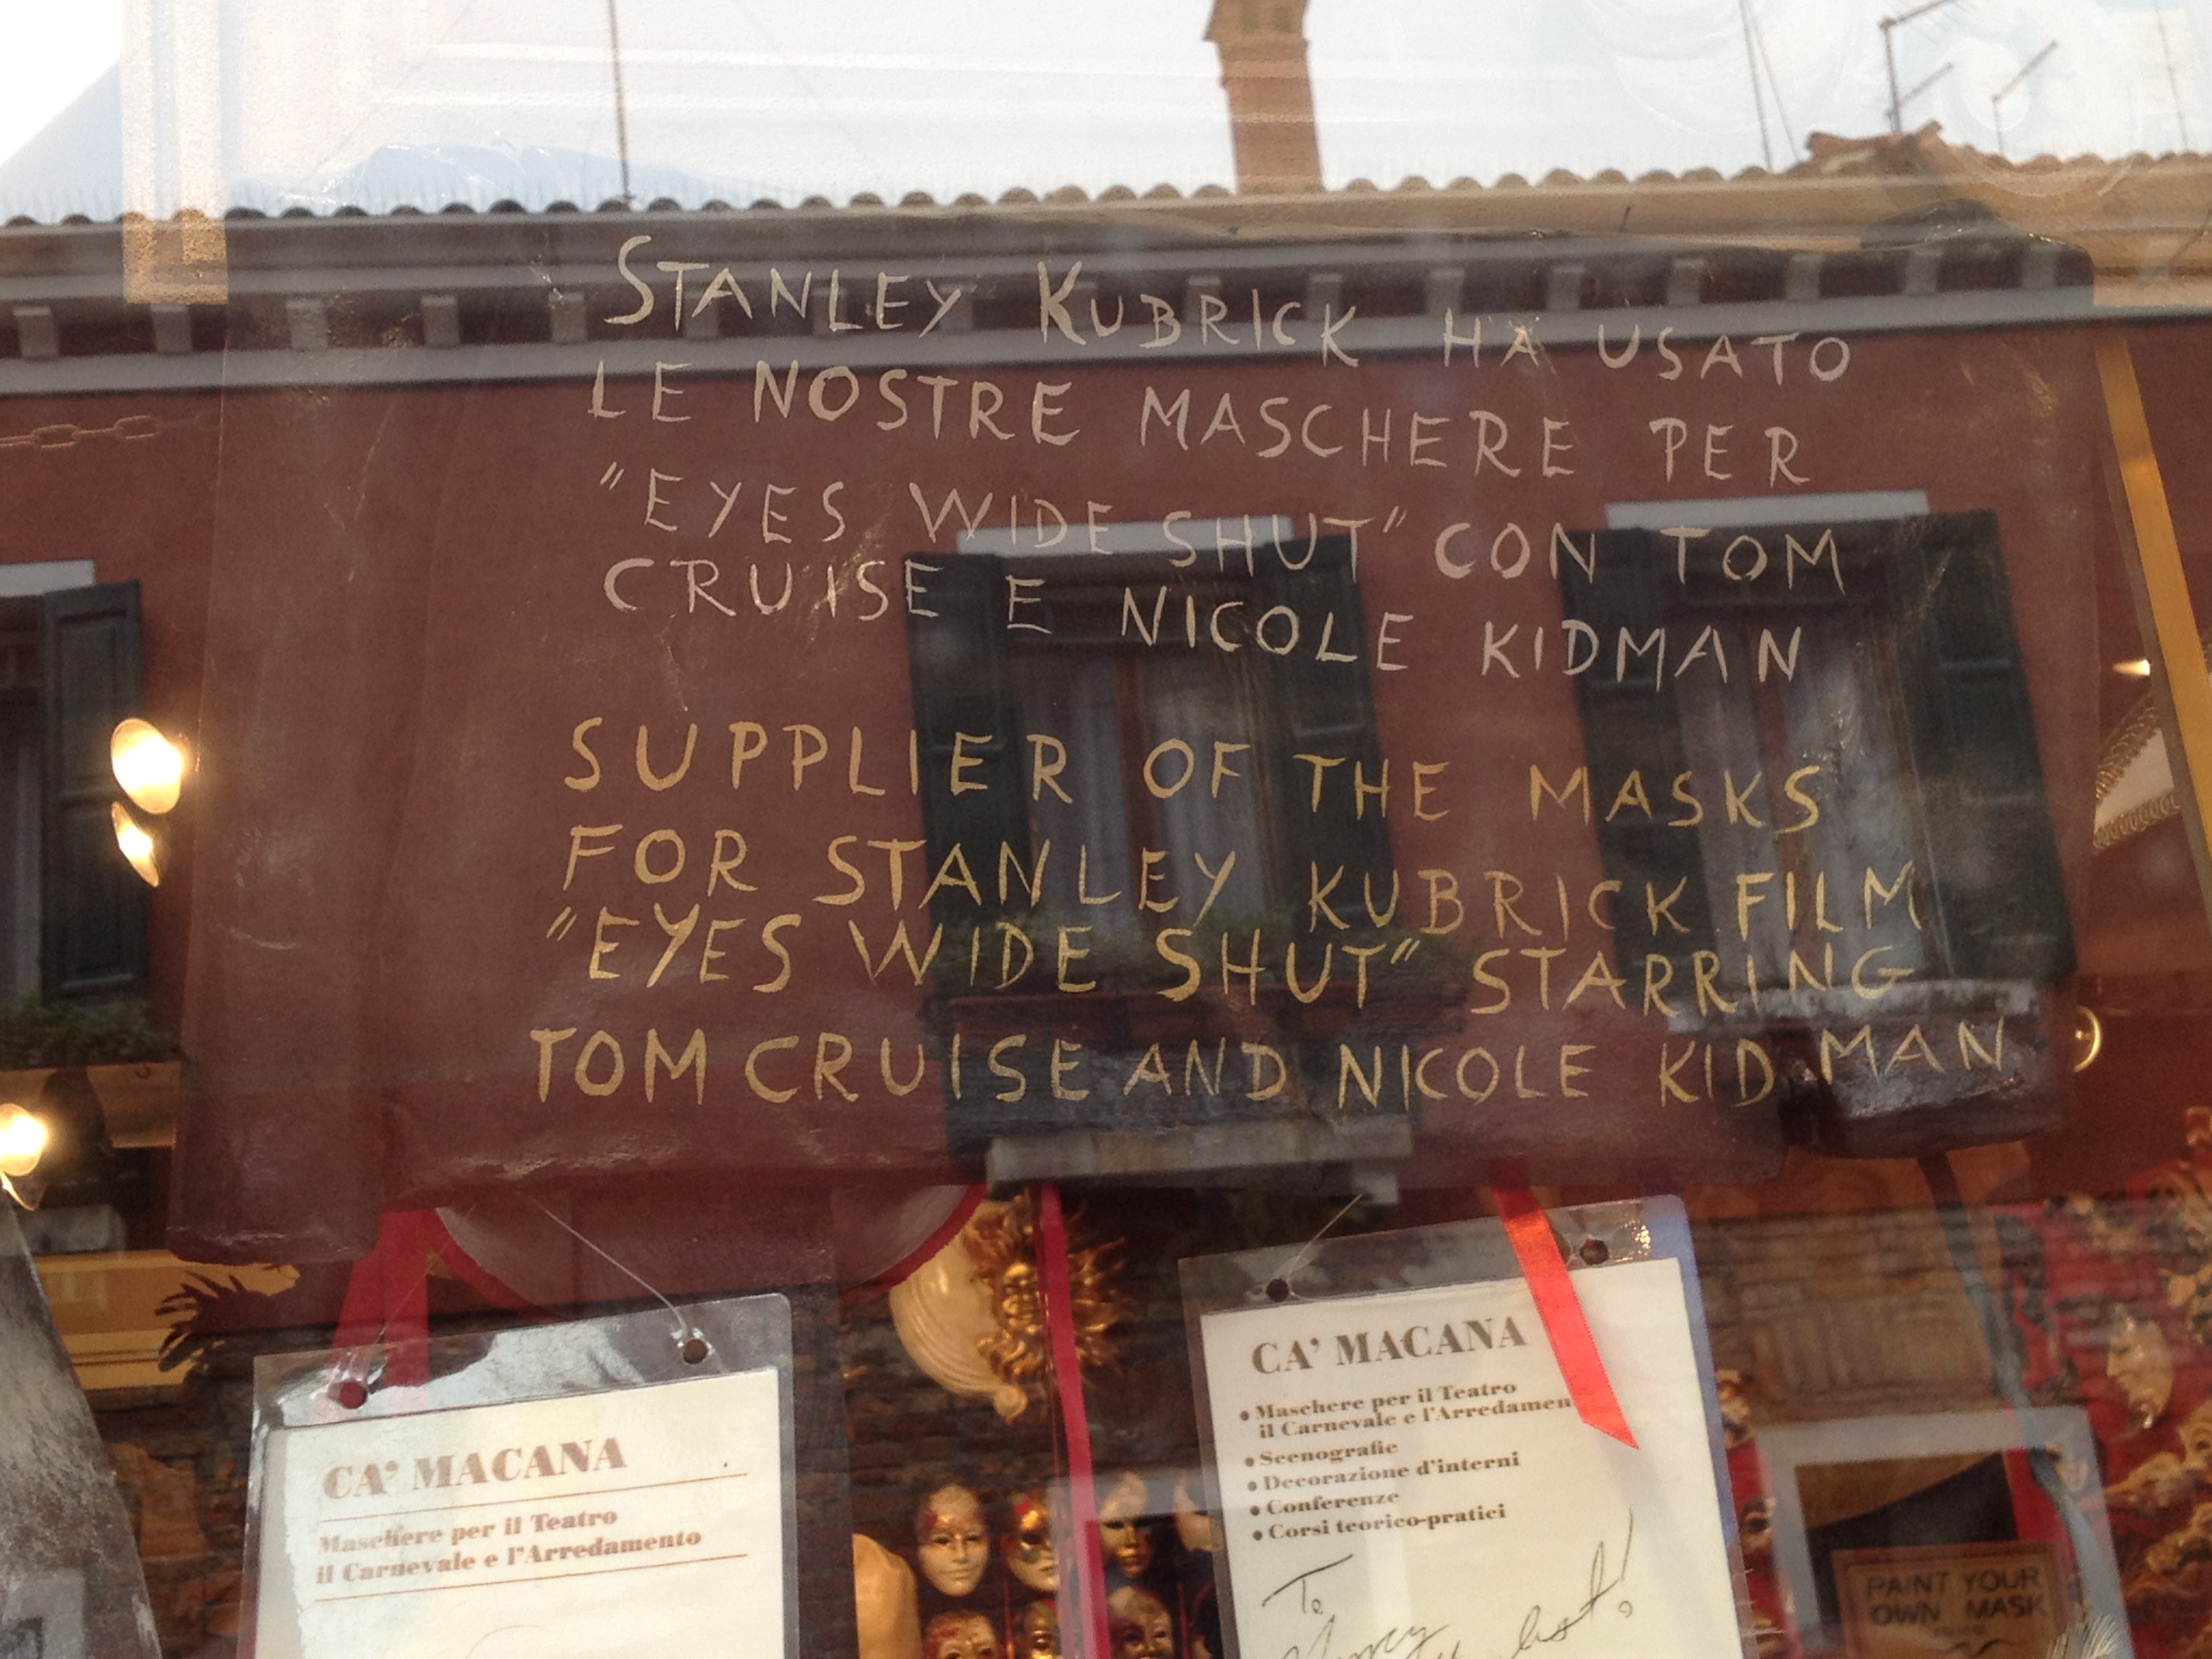 STANLEY KUBRICK HA USATO
LE NOSTRE MASCHERE PER
"EYES WIDE SHUT" CON TOM
CRUISE E NICOLE KIDMAN
SUPPLIER OF THE MASKS
FOR STANLEY KUBRICK FILM
"EYES WIDE SHUT" STARRING
TOM CRUISE AND NICOLE KIDMAN
CA' MACANA
Maschere per il Teatro
il Carnevale e l'Arredamento
CA' MACANA
• Maschere per il Teatro
il Carnevale e l'Arredamen
• Scenografie
• Decorazione d'interni
• Conferenze
• Corsi teorico-pratici
To
best!
PAINT YOUR
OWN MASK